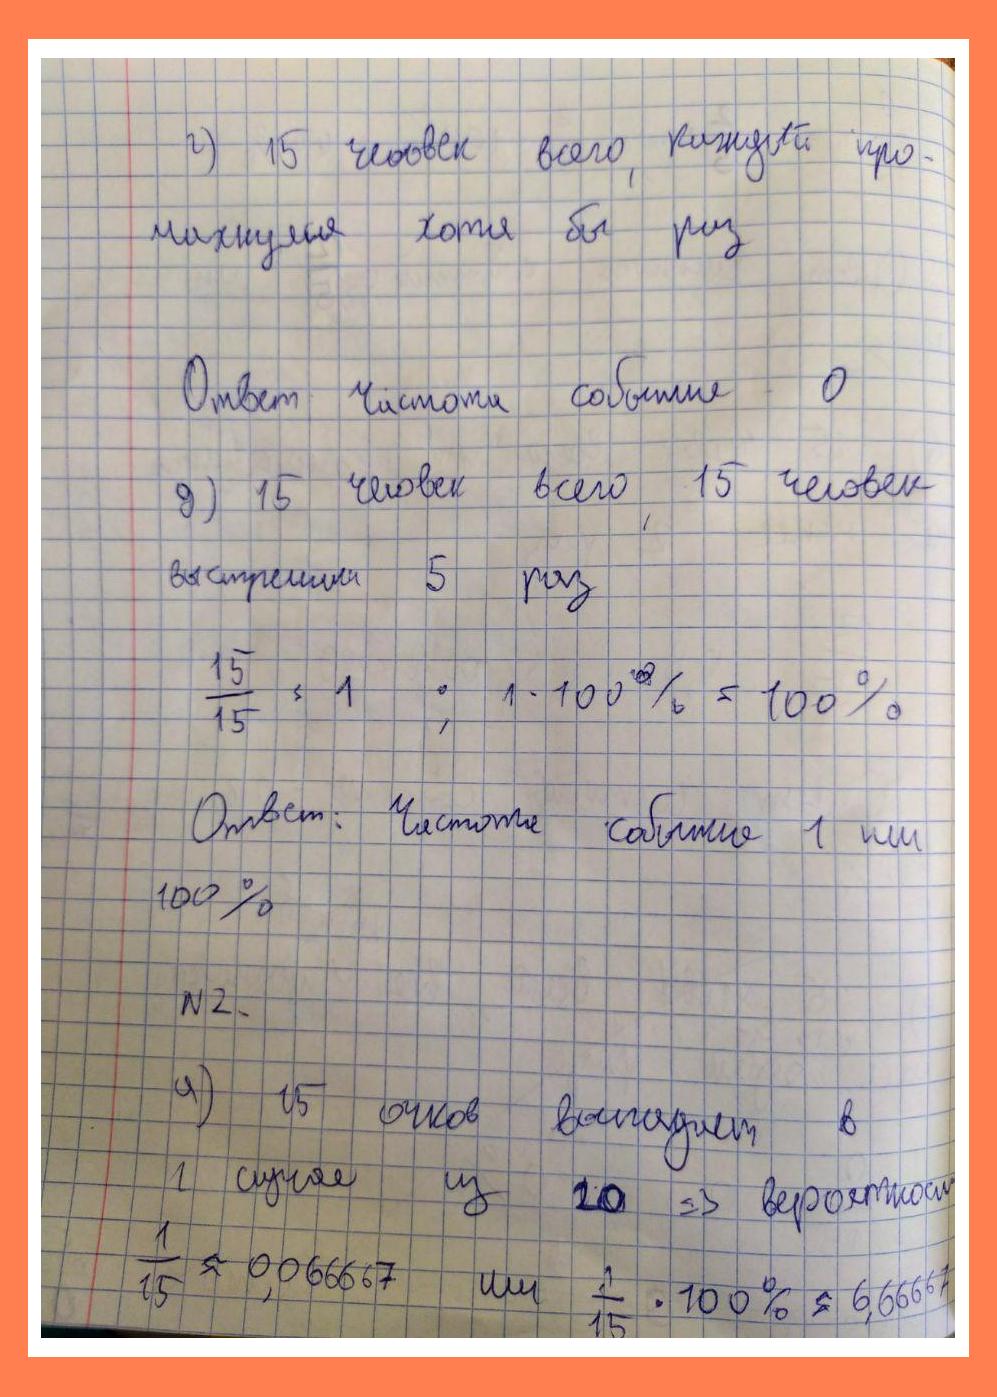 г) 15 человек всего, каждый про-
махнулся хотя бы раз
Ответ частота события 0
д) 15 человек всего, 15 человек
выстрелили 5 раз
15/15 = 1 ; 1·100% = 100%
Ответ: Частота события 1 или
100%
N2.
а) 15 очков выпадает в
1 случае из 20 => вероятност
1/15 ≈ 0,066667 или 1/15 · 100% ≈ 6,66667